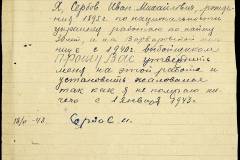 Я, Сербов Иван Михайлович, рожде-
ния 1895 г. по национальности
украинец работаю по найму
и на Варваровской
с 1942 г.
прошу Вас утвердить
меня на этой работе и
установить жалованье
так как я не получаю ни
чего с 1 января 1943 г.
18/II - 43.